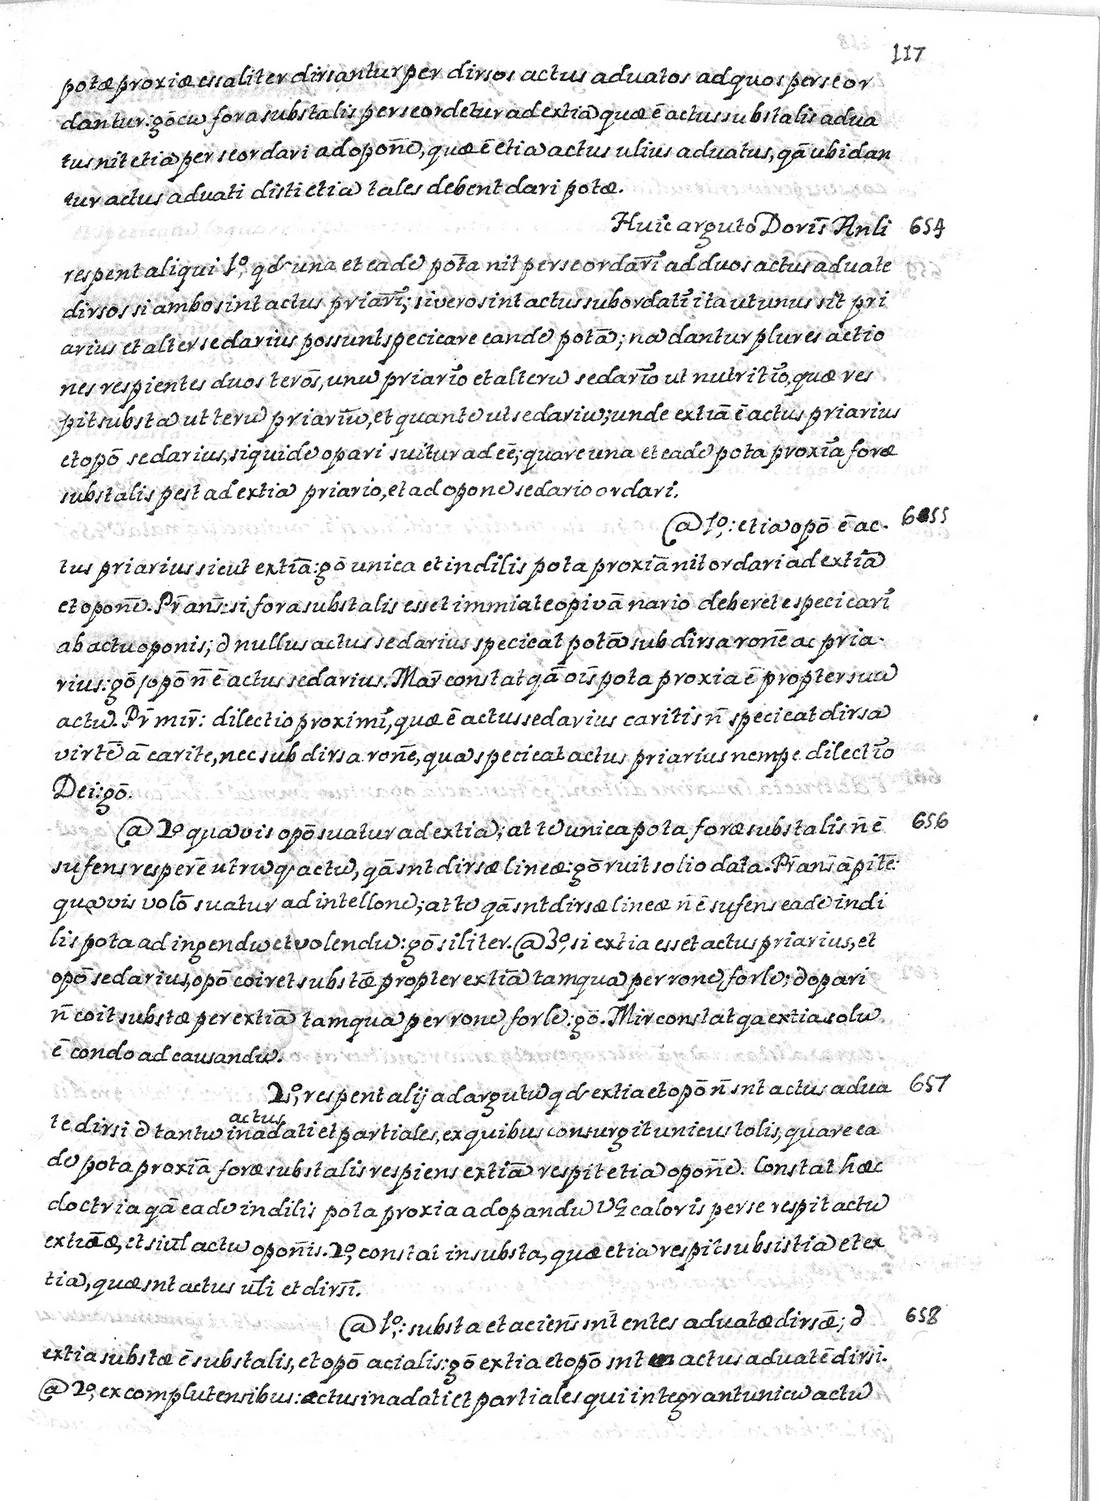 117
potæ proxiæ essaliter dirsantur per dirsos actus aduatos ad quos per se or
dantur: gō cu fora substalis per se ordetur ad extia quæ ē actus substalis adua
tus nit etia per se ordari ad oponē, quæ ē etia actus ulius aduatus, qā ubi dan
tur actus aduati disti etia tales debent dari potæ.
Huic arguto Doris Anli 654
respent aliqui 1º, qd una et eade pota nit per se ordari ad duos actus aduate
dirsos si ambo sint actus priari; si vero sint actus subordati ita ut unus sit pri
arius et alter sedarius possunt specicare eande potā; na dantur plures actio
nes respientes duos teros, unu priario et alteru sedario ut nutritio, quæ res
pit substa ut teru priariu, et quante ut sedariu; unde extiā ē actus priarius
et opō sedarius, siquide opari suitur ad eē; quare una et eade pota proxia foræ
substalis pest ad extia priario, et ad opone sedario ordari.
@ 1º: etia opō ē ac- 655
tus priarius sicut extiā: gō unica et indilis pota proxiā nit ordari ad extiā
et oponē. Pr ans: si fora substalis esset immiate opivā nario deberet especicari
ab actu oponis; ∂ nullus actus sedarius specicat potā sub dirsa ronē ac pria-
rius: gō opō ñ ē actus sedarius. Mar constat qā ois pota proxia ē propter sua
actu. Pr mir: dilectio proximi, quæ ē actus sedarius caritis ñ specicat dirsa
virtē ā carite, nec sub dirsa ronē, qua specicat actus priarius nempe dilectio
Dei: gō.
@ 2º quavis opō suatur ad extia; at te unica pota foræ substalis ñ ē 656
sufens resperē utruq actu, qā snt dirsæ lineæ: gō ruit solio data. Pr ans ā pitē:
quavis volō suatur ad intellone; at te qā snt dirsæ lineæ ñ ē sufens eade indi
lis pota ad ingendu et volendu: gō siliter. @ 3º si extia esset actus priarius, et
opō sedarius, opō coiret substæ propter extiā tamqua per rone forle; ∂ opari
ñ coit substæ per extiā tamqua per rone forle: gō. Mir constat qa extia solu
ē condo ad causandu.
2º, respent alij ad argutu qd extia et opō ñ snt actus adua 657
te dirsi ∂ tantu actus inadati et partiales, ex quibus consurgit unicus tolis, quare ea
de pota proxiā foræ substalis respiens extiā respit etia oponē. Constat hæc
doctria qā eade indilis pota proxia ad opandu vg caloris per se respit actu
extiæ, et siul actu oponis. 2º, constat in substa, quæ etia respit subsistia et ex
tia, quæ snt actus uli et dirsi.
@ 1º: substa et aciens snt entes aduatæ dirsæ; ∂ 658
extia substæ ē substalis, et opō acialis: gō extia et opō snt actus aduatē dirsi.
@ 2º, ex complutensibus: actus inadati et partiales qui integrant unicu actu